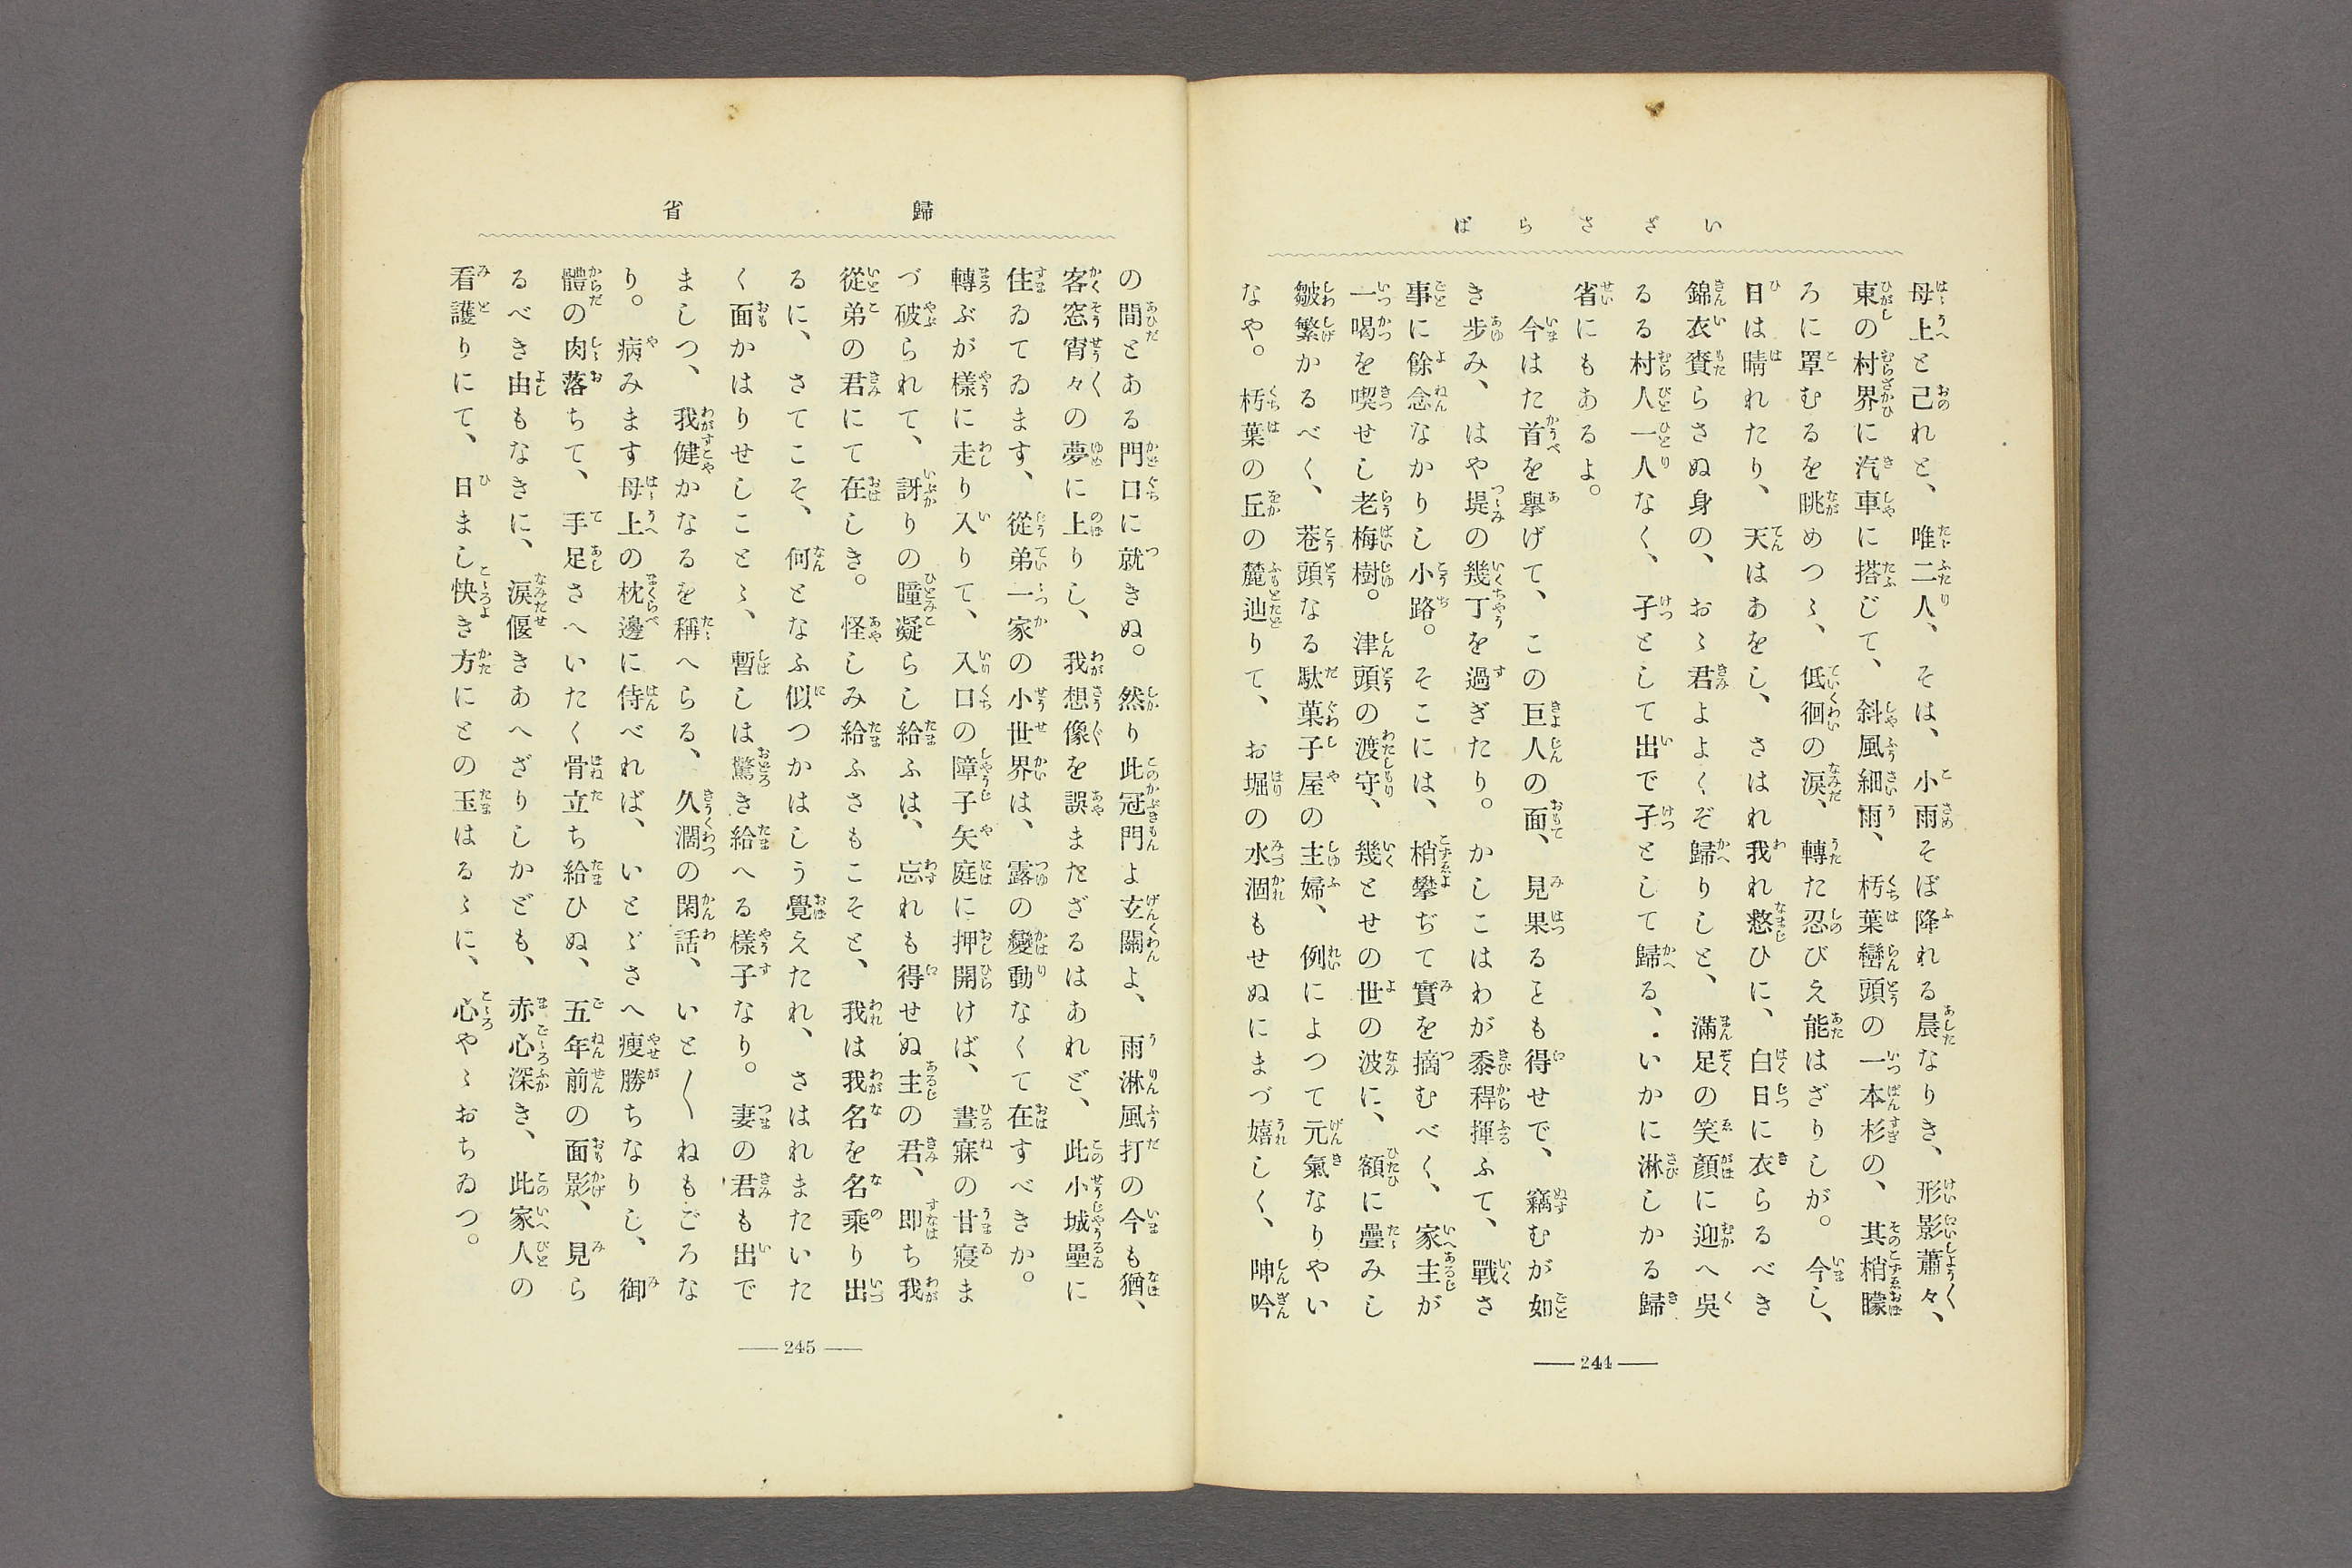 いざさらば
母上と己れと、唯二人、そは、小雨そぼ降れる晨なりき、形影蕭々、
東の村界に汽車に搭じて、斜風細雨、朽葉巒頭の一本杉の、其梢朦
ろに罩むるを眺めつゝ、低徊の淚、轉た忍びえ能はざりしが。今し、
日は晴れたり、天はあをし、さはれ我れ憖ひに、白日に衣らるべき
錦衣賚らさぬ身の、おゝ君よよくぞ歸りしと、滿足の笑顏に迎へ吳
るる村人一人なく、孑として出で孑として歸る、いかに淋しかる歸
省にもあるよ。
今はた首を擧げて、この巨人の面、見果るとも得せで、竊むが如
き步み、はや堤の幾丁を過ぎたり。かしこはわが黍稈揮ふて、戰さ
事に餘念なかりし小路。そこには、梢攀ぢて實を摘むべく、家主が
一喝を喫せし老梅樹。津頭の渡守、幾とせの世の波に、額に疊みし
皺繁かるべく、巷頭なる駄菓子屋の主婦、例によつて元氣なりやい
なや。朽葉の丘の麓辿りて、お堀の水涸もせぬにまづ嬉しく、呻吟
— 244 —
歸省
の間とある門口に就きぬ。然り此冠門よ玄關よ、雨淋風打の今も猶、
客窓宵々の夢に上りし、我想像を誤またざるはあれど、此小城壘に
住ゐてゐます、從弟一家の小世界は、露の變動なくて在すべきか。
轉ぶが樣に走り入りて、入口の障子矢庭に押開けば、晝寐の甘寢ま
づ破られて、訝りの瞳凝らし給ふは、忘れも得せぬ主の君、即ち我
從弟の君にて在しき。怪しみ給ふさもこそと、我は我名を名乘り出
るに、さてこそ、何となふ似つかはしう覺えたれ、さはれまたいた
く面かはりせしことゝ、暫しは驚き給へる樣子なり。妻の君も出で
ましつ、我健かなるを稱へらる、久濶の閑話、いと〱ねもごろな
り。病みます母上の枕邊に侍べれば、いとゞさへ瘦勝ちなりし、御
體の肉落ちて、手足さへいたく骨立ち給ひぬ、五年前の面影、見ら
るべき由もなきに、淚偃きあへざりしかども、赤心深き、此家人の
看護りにて、日まし快き方にとの玉はるゝに、心やゝおちゐつ。
— 245 —